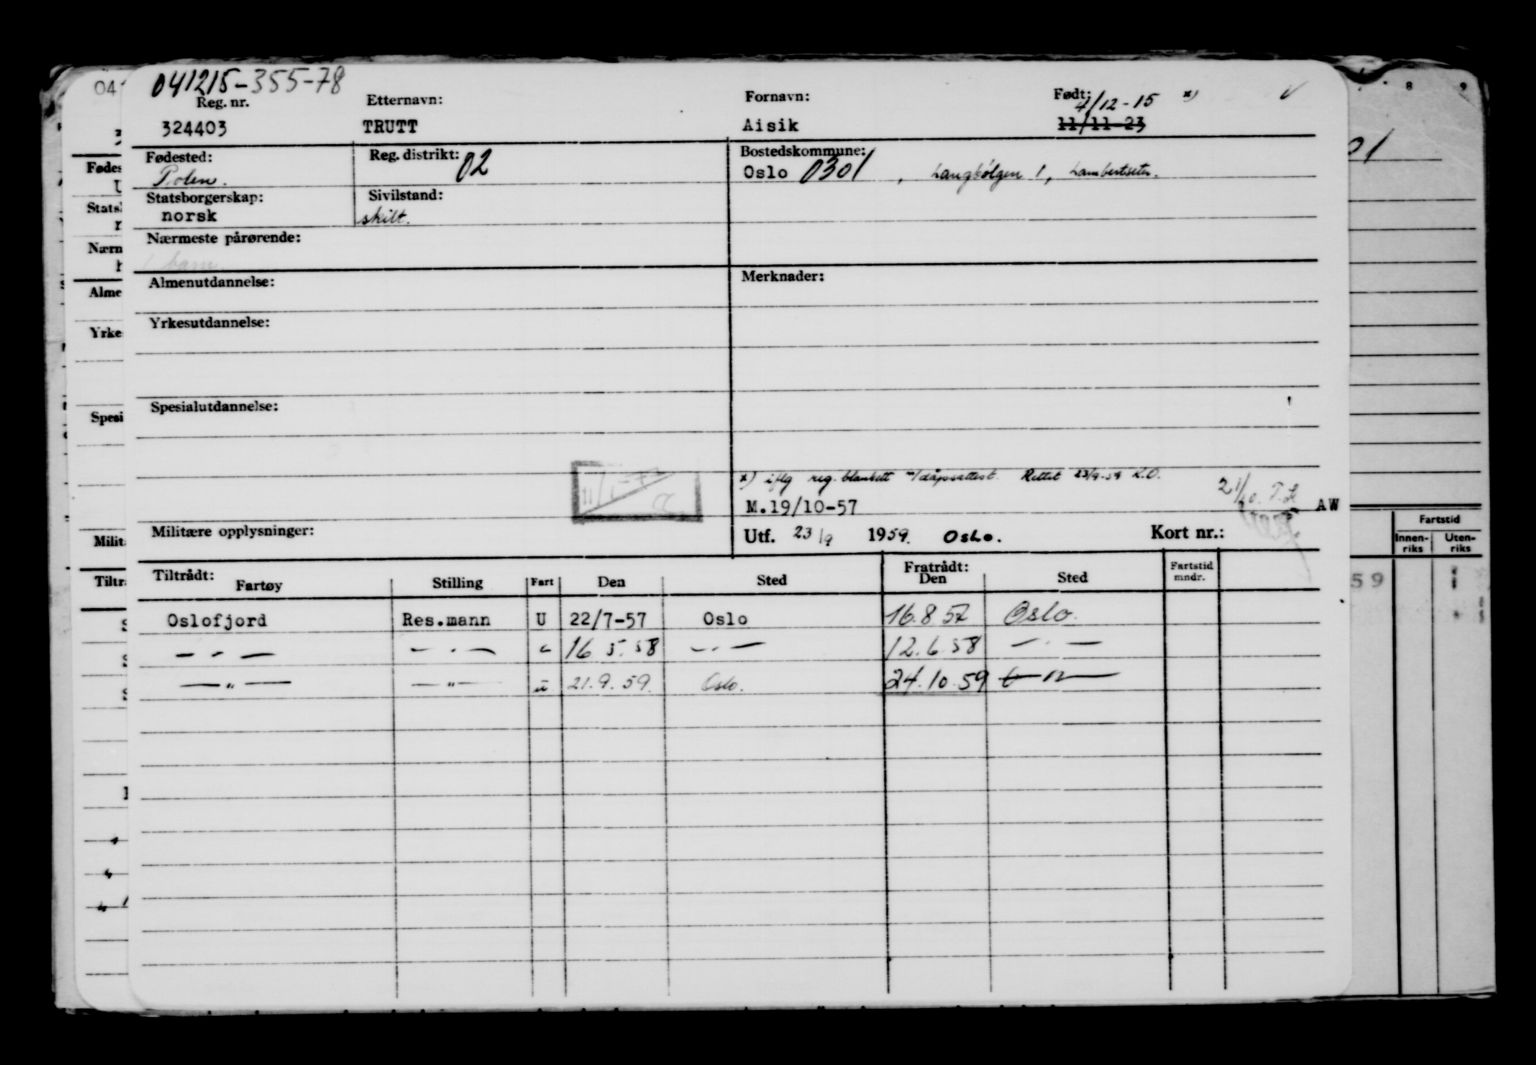 041215-355-78
Reg. nr. Etternavn: Fornavn: Født:
4/12-15 x)
324403 TRUTT Aisik 11/11-23
Fødested: Reg. distrikt: 02 Bostedskommune:
Polen. Oslo 0301, Langbølgen 1, Lambertseter.
Statsborgerskap: Sivilstand:
norsk skilt.
Nærmeste pårørende:
1 barn
Almenutdannelse: Merknader:
Yrkesutdannelse:
Spesialutdannelse:
x) iflg reg. blankett m/dåpsattest. Rettet 23/9-59 R.O.
M.19/10-57 AW
Militære opplysninger: Utf. 23/9 1959. Oslo. Kort nr.:
Tiltrådt: Fratrådt:
Fartøy Stilling Fart Den Sted Den Sted Fartstid mndr.
Oslofjord Res.mann U 22/7-57 Oslo 16.8 57 Oslo.
— " — — " — " 16.5.58 — " — 12.6.58 — " —
— " — — " — u 21.9.59. Oslo. 24.10.59 — " —
04
Fødes
Nærn
Alme
Yrke
Spesi
Milit
Tiltr
8 9
01
Fartstid
Innen-riks Uten-riks
59